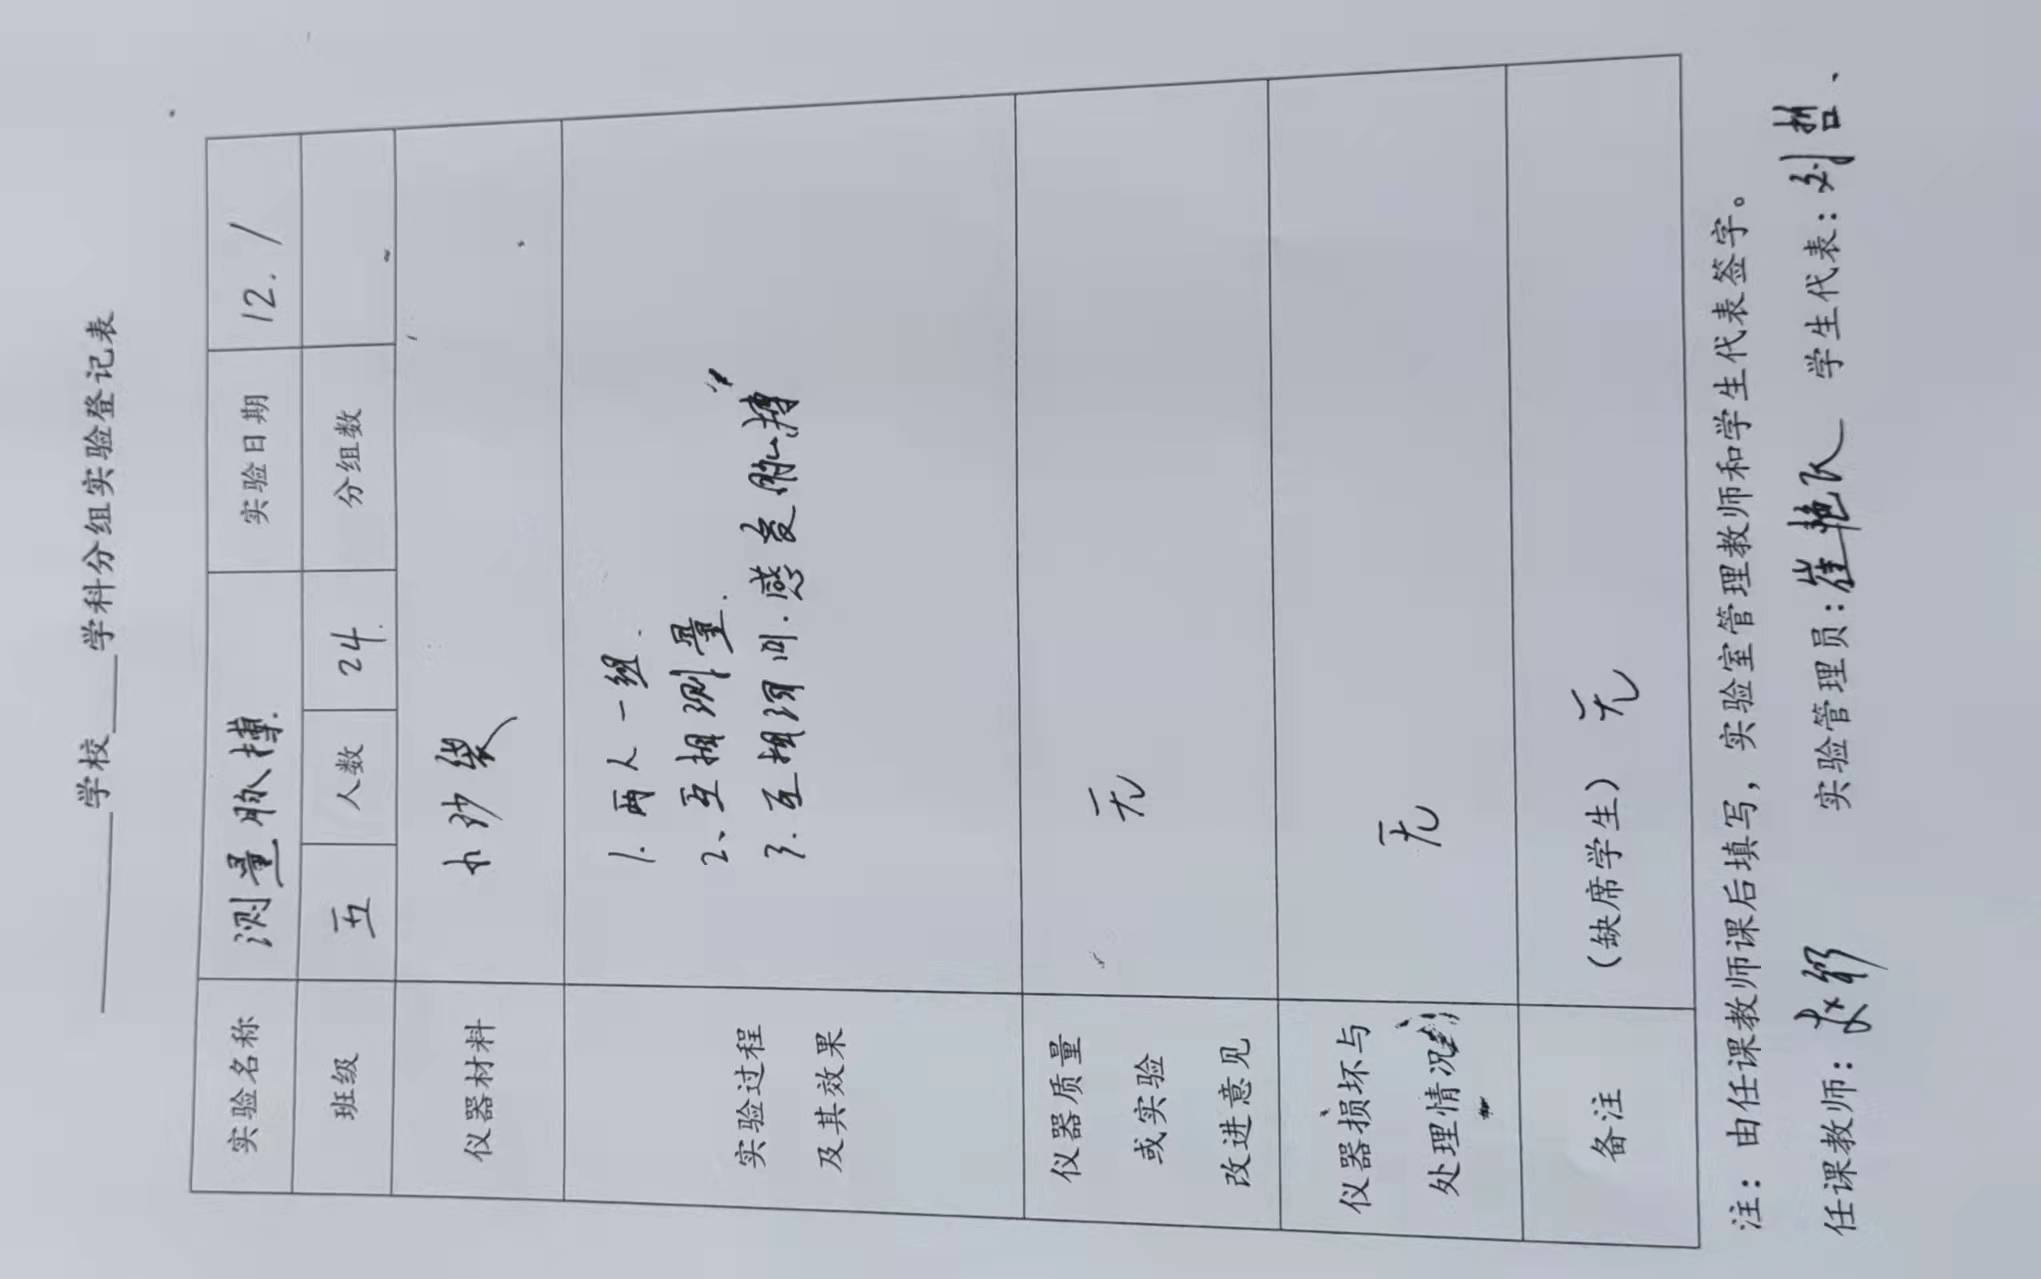 ______学校___学科分组实验登记表
实验名称 测量脉搏. 实验日期 12.1
班级 五 人数 24. 分组数
仪器材料 小沙袋
实验过程
及其效果
1.两人一组.
2、互相测量.
3.互相询问.感受脉搏
仪器质量
或实验
改进意见
无
仪器损坏与
处理情况
无
备注 (缺席学生) 无
注：由任课教师课后填写，实验室管理教师和学生代表签字。
任课教师： 实验管理员：崔艳 学生代表：刘哲